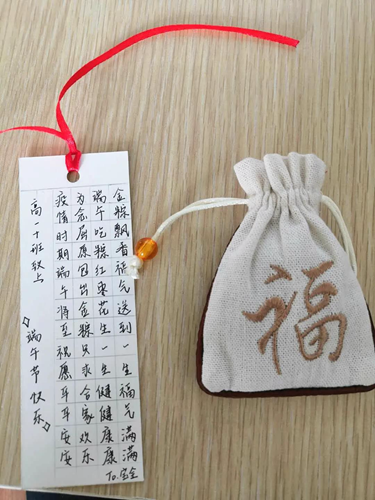 金粽飘香福气送到一生福气满满
端午吃粽红枣花生一生健健康康
为念屈原包出金粽只求合家欢乐
疫情时期端午将至祝愿耳耳安安
高一十班敬上
端午节快乐
To.
福